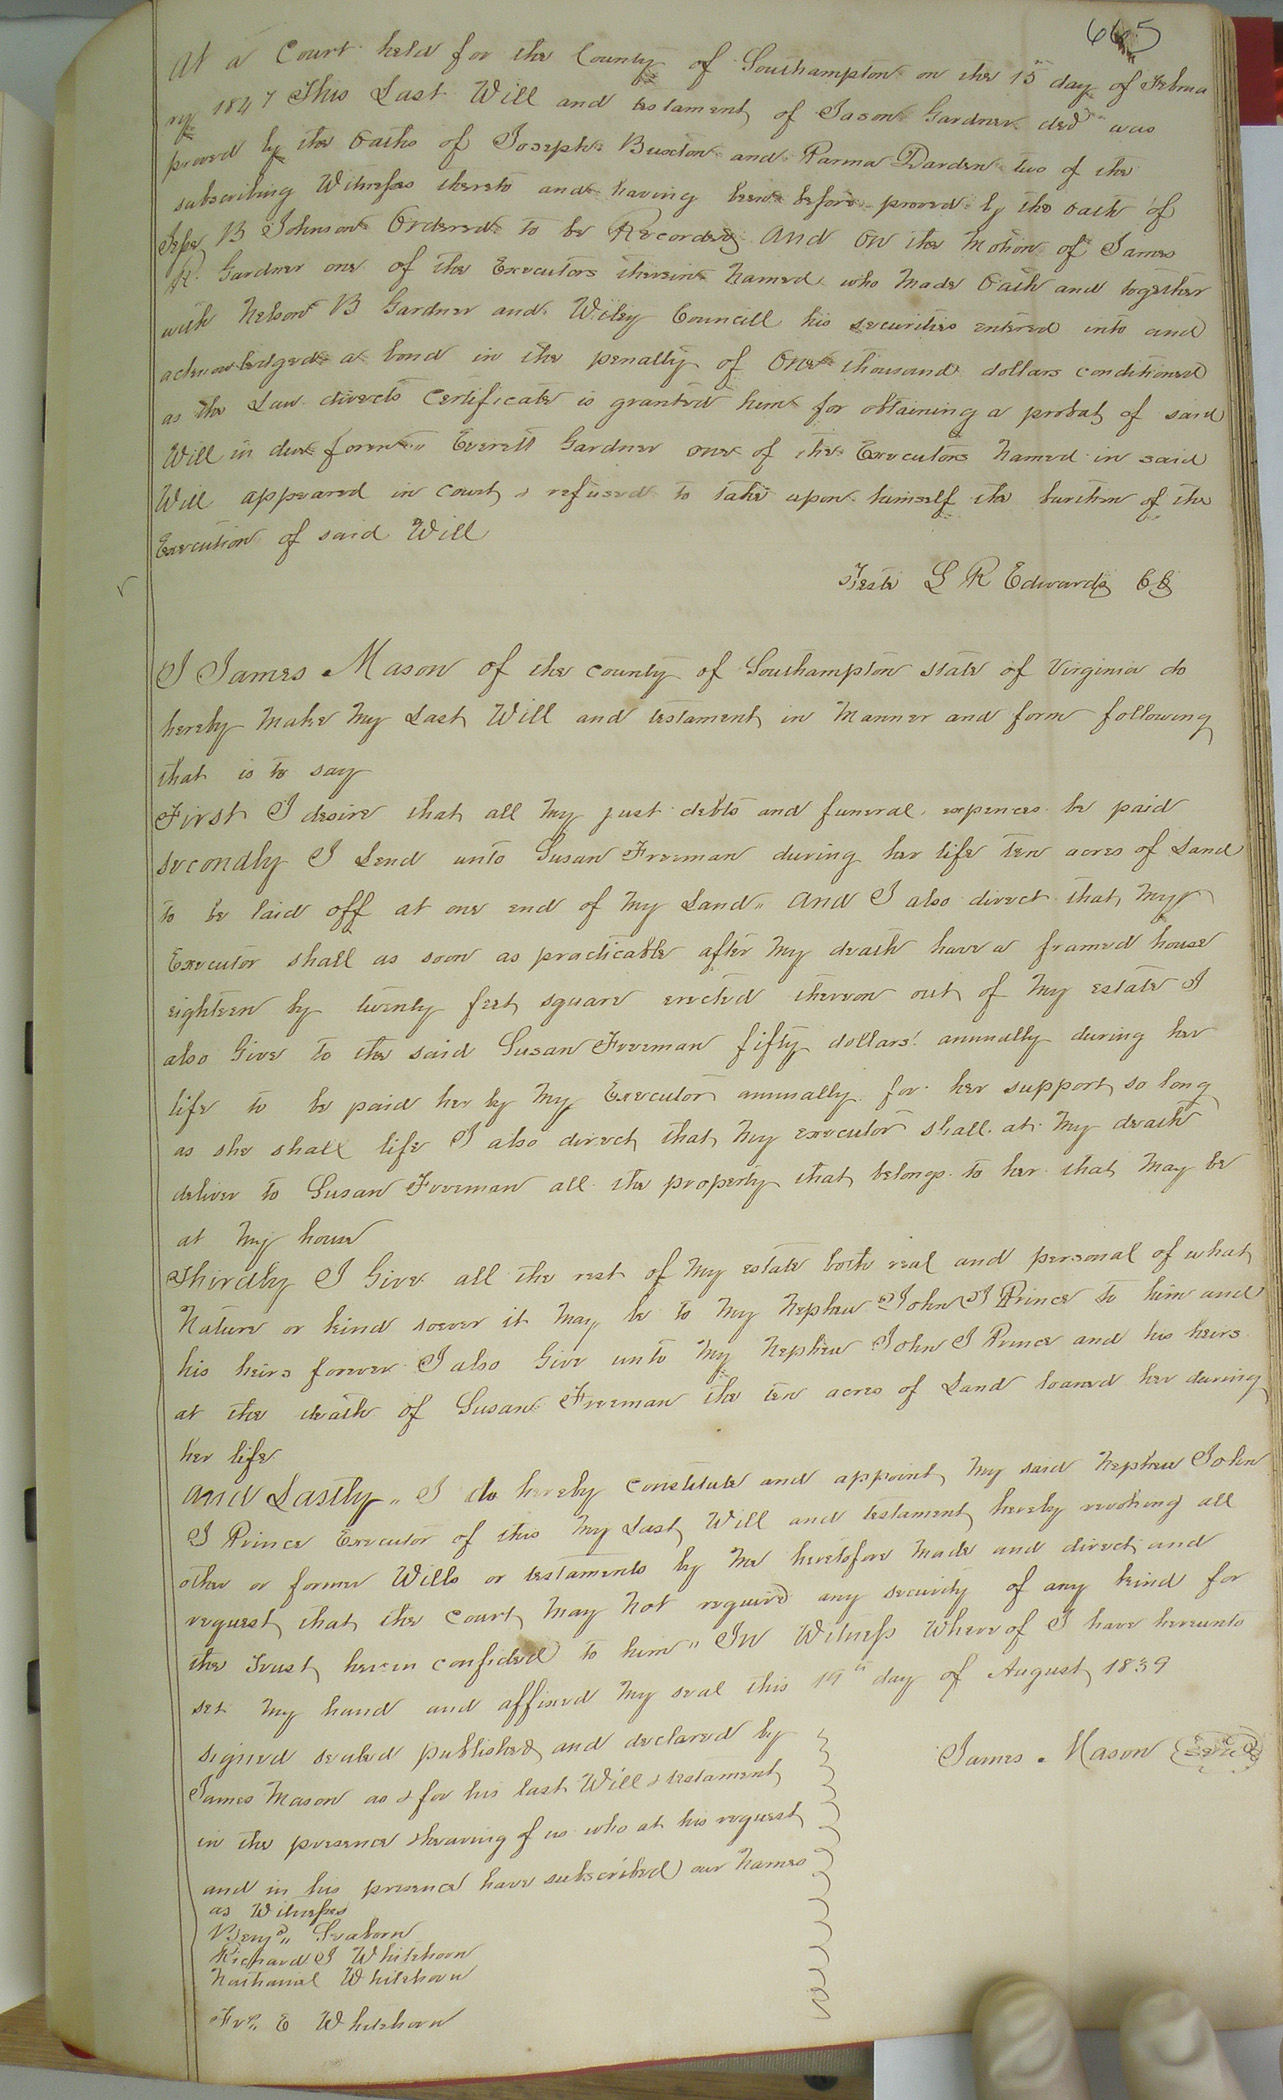 665
At a Court held for the County of Southampton on the 15th day of Februa
ry 1847 This Last Will and testament of Jason Gardner decd was
proved by the Oaths of Joseph Buxton and Parma Darden two of the
subscribing Witnesses thereto and having been before proved by the oath of
Jesse B Johnson Ordered to be Recorded And on the Motion of James
R. Gardner one of the Executors therein Named who Made Oath and together
with Nelson B Gardner and Wiley Councill his securities entered into and
acknowledged a bond in the penalty of One thousand dollars conditioned
as the Law directs Certificate is granted him for obtaining a probat of said
Will in due form" Everett Gardner one of the Executors Named in said
Will appeared in Court & refused to take upon himself the burthen of the
Execution of said Will
Teste L R Edwards CC
I James Mason of the county of Southampton state of Virginia do
hereby Make My Last Will and testament in Manner and form following
that is to say
First I desire that all My just debts and funeral expences be paid
Secondly I Lend unto Susan Freeman during her life ten acres of Land
to be laid off at one end of My Land" And I also direct that My
Executor shall as soon as practicable after My death have a framed house
eighteen by twenty feet square erected thereon out of My estate I
also Give to the said Susan Freeman fifty dollars annually during her
life to be paid her by My Executor annually for her support so long
as she shall life I also direct that My executor shall at My death
deliver to Susan Freeman all the property that belongs to her that May be
at My house
Thirdly I Give all the rest of My estate both real and personal of what
Nature or kind soever it May be to My Nephew John J Prince to him and
his heirs forever I also Give unto My Nephew John J Prince and his heirs
at the death of Susan Freeman the ten acres of Land loaned her during
her life
And Lastly" I do hereby constitute and appoint My said Nephew John
J Prince Executor of this My Last Will and testament hereby revoking all
other or former Wills or testaments by Me heretofore Made and direct and
request that the Court May Not require any security of any kind for
the Trust herein confided to him" In Witness Whereof I have hereunto
set My hand and affixed My seal this 19th day of August 1839
signed sealed published and declared by
James Mason Seal
James Mason as & for his last Will & testament
in the presence & hearing of us who at his request
and in his presence have subscribed our Names
as Witnesses
Benja" Seaborn
Richard J Whitehorn
Nathaniel Whitehorn
E Whitehorn